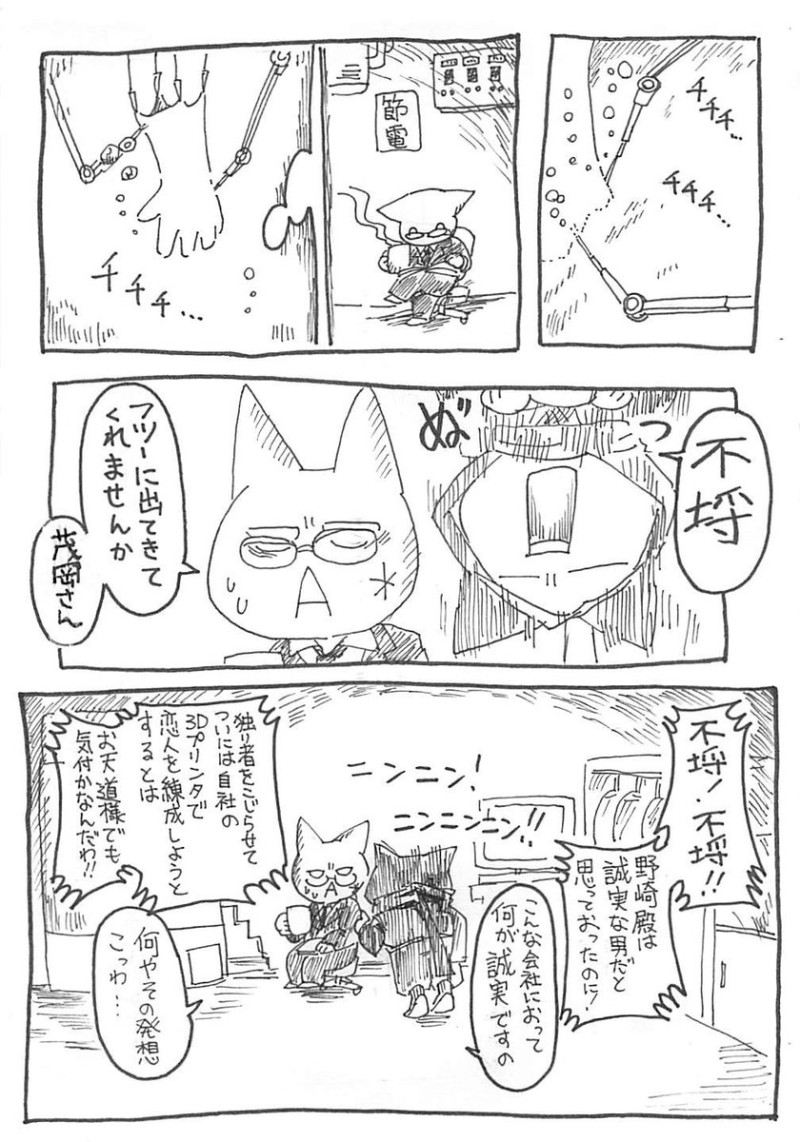 チチチ…
チチチ…
節電
チチチ…
不埒
ぬ゛
っ
フツーに出てきて
くれませんか
茂岡さん
不埒!不埒!!
野崎殿は
誠実な男だと
思っておったのに!
こんな会社におって
何が誠実ですの
ニンニン!
ニンニンニン!!
独り者をこじらせて
ついには自社の
3Dプリンタで
恋人を練成しようと
するとは
お天道様でも
気付かなんだわ!!
何やその発想
こっわ…